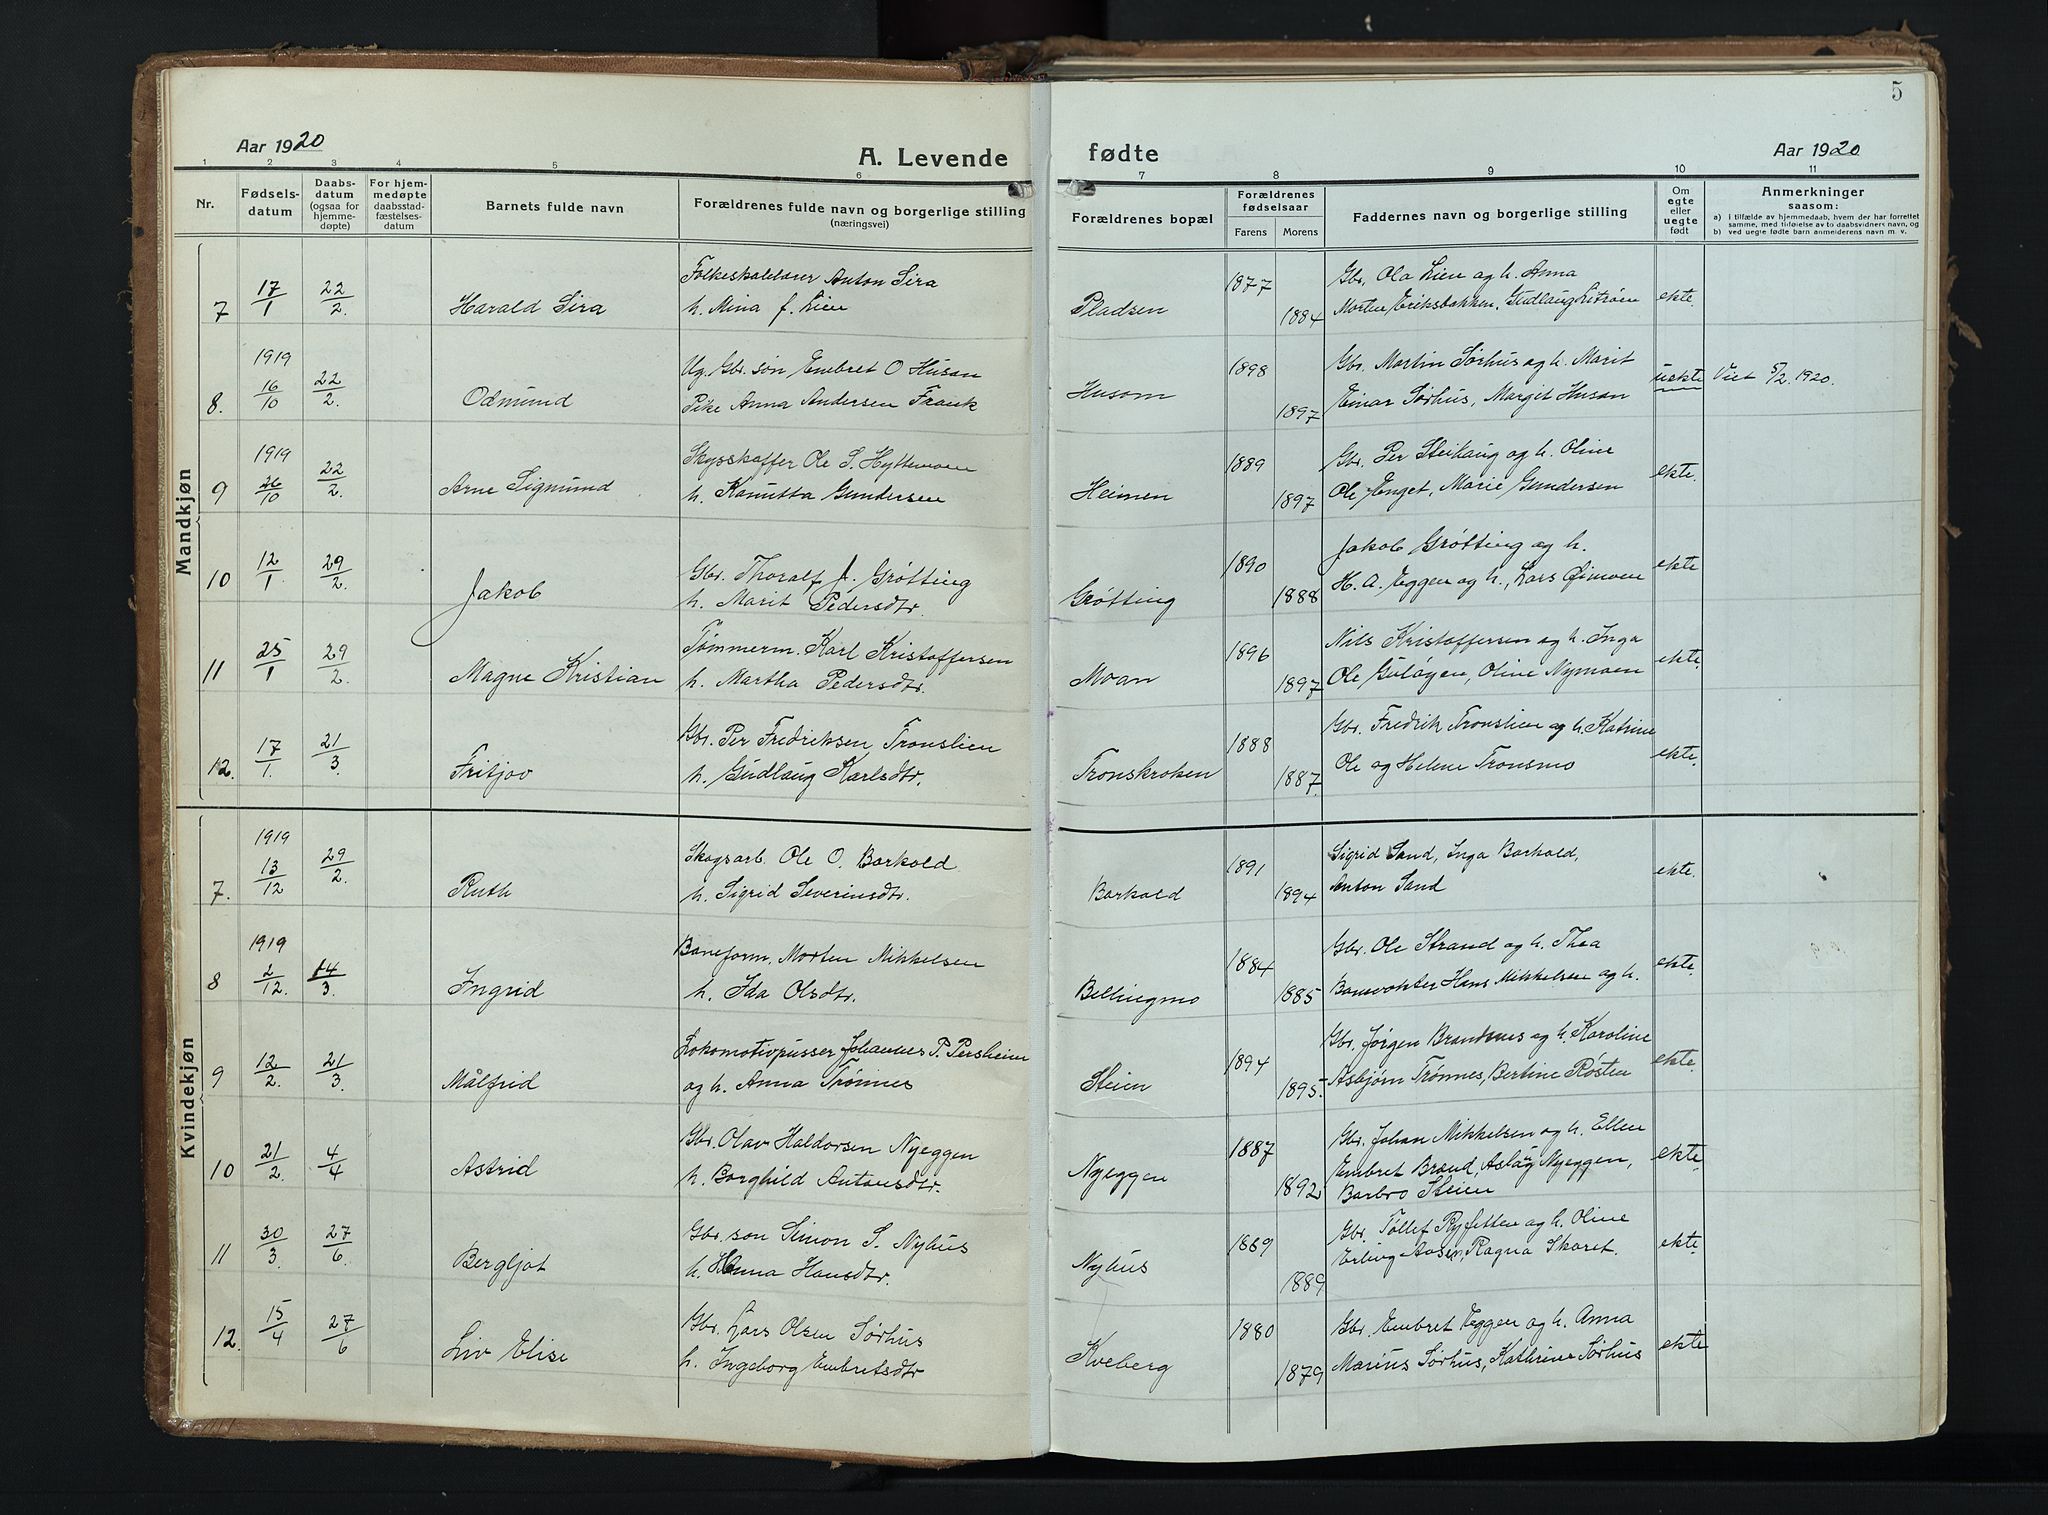 5
Aar 1920
A. Levende fødte
Aar 1920
1 2 3 4 5 6 7 8 9 10 11
Nr.
Fødsels-
datum
Daabs-
datum
(ogsaa for
hjemme-
døpte)
For hjem-
medøpte
daabsstad-
fæstelses-
datum
Barnets fulde navn
Forældrenes fulde navn og borgerlige stilling
(næringsvei)
Forældrenes bopæl
Forældrenes
fødselsaar
Farens Morens
Faddernes navn og borgerlige stilling
Om
egte
eller
uegte
født
Anmerkninger
saasom:
a) i tilfælde av hjemmedaab, hvem der har forrettet
samme, med tilføielse av to daabsvidners navn, og
b) ved uegte fødte barn anmelderens navn m. v.
Mandkjøn
7 17/1 22/2. Harald Sira
Folkeskolelærer Anton Sira
h. Mina f. Lien
Pladsen 1877 1884
Gbr. Ola Lien og h. Anna
Morten Eriksbakken, Gudlaug Litröen
ekte.
8. 1919 16/10 22/2. Odmund
Ug. Gbr. søn Embret O Husan
Pike Anna Andersen Frank
Husom 1898 1897
Gbr. Martin Sørhus og h. Marit
Einar Sørhus, Margit Husan
uekte Viet 8/2. 1920.
9 1919 26/10 22/2. Arne Sigmund
Skysskaffer Ole S. Hyttemoen
h. Kanutta Gundersen
Heimen 1889 1897
Gbr. Per Steihaug og h. Oline
Ole Enget, Marie Gundersen
ekte.
10 12/1. 29/2. Jakob
Gbr. Thoralf J. Grøtting
h. Marit Pedersdtr.
Grøtting 1890 1888
Jakob Grøtting og h.
H. A. Eggen og h., Lars Øimoen
ekte
11 25/1 29/2. Magne Kristian
Tømmerm. Karl Kristoffersen
h. Martha Pedersdtr.
Moan 1896 1897
Nils Kristoffersen og h. Inga
Ole Guløyen, Oline Nymoen
ekte.
12. 17/1. 21/3. Fritjov
Gbr. Per Fredriksen Tronslien
h. Gudlaug Karlsdtr.
Tronskroken 1888 1887.
Gbr. Fredrik Tronslien og h. Katrine
Ole og Helene Tronsmo
ekte.
Kvindekjøn
7. 1919 13/12 29/2. Ruth
Skogsarb. Ole O. Barkald
h. Sigrid Severinsdtr.
Barkald 1891 1894
Sigrid Sand, Inga Barkald,
Anton Sand
ekte.
8 1919 2/12. 14/3. Ingrid
Baneform. Morten Mikkelsen
h. Ida Olsdtr.
Bellingmo 1884 1885
Gbr. Ole Strand og h. Thea
Banevokter Hans Mikkelsen og h.
ekte.
9 12/2. 21/3 Målfrid
Lokomotivpusser Johannes P. Persheim
og h. Anna Trønnes
Steien 1894 1895.
Gbr. Jørgen Brandsnes og h. Karoline
Asbjørn Trönnes, Bertine Røsten
ekte.
10 21/2. 4/4 Astrid
Gbr. Olav Haldorsen Nyeggen
h. Borghild Antonsdtr.
Nyeggen 1887 1892
Gbr. Johan Mikkelsen og h. Ellen
Embret Brænd, Aslaug Nyeggen,
Barbro Steien
ekte.
11 30/3. 27/6. Bergljot
Gbr. søn Simon S. Nyhus
h. Hanna Hansdtr.
Nyhus 1889 1889
Gbr. Tollef Ryfetten og h. Oline
Erling Aasen, Ragna Skaret.
ekte.
12. 15/4 27/6 Liv Elise
Gbr. Lars Olsen Sørhus
h. Ingeborg Embretsdtr
Kveberg 1880 1879
Gbr. Embret Eggen og h. Anna
Marius Sørhus, Kathrine Sørhus
ekte